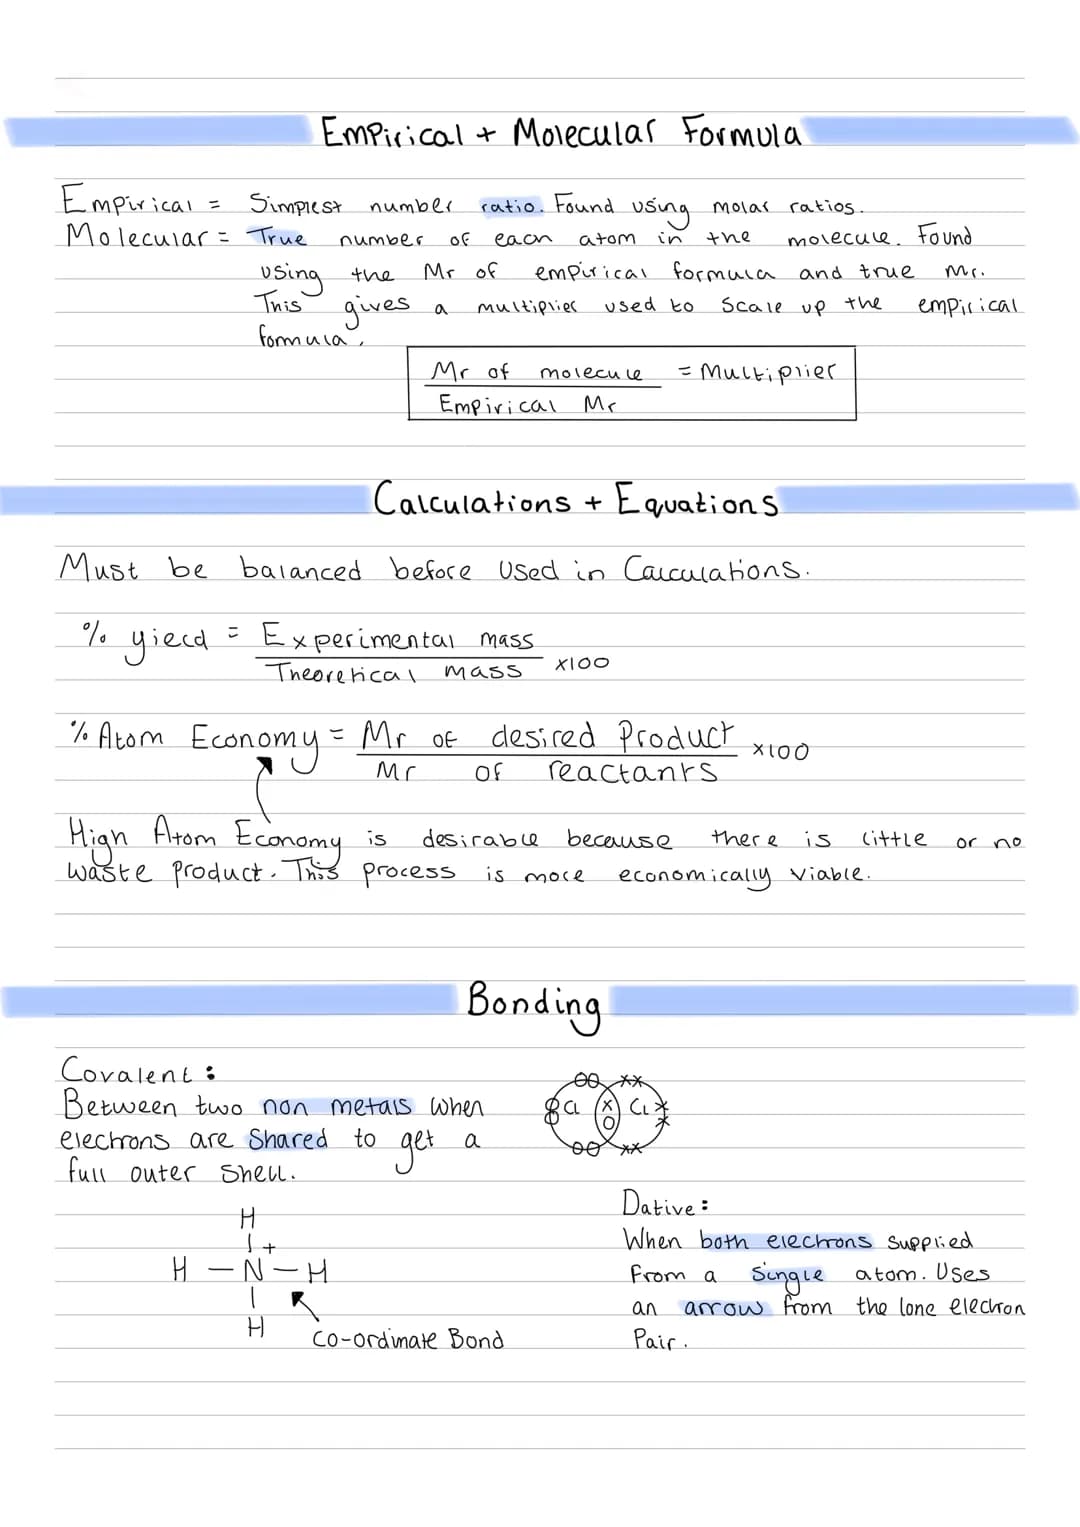 Empirical + Molecular Formula
Empirical = Simplest number ratio. Found using molar ratios.
Molecular = True number of each atom in the molecule. Found
using the Mr of empirical formula and true Mr.
This gives a multiplier used to scale up the empirical
formula.
Mr of molecule = Multiplier
Empirical Mr
Calculations + Equations
Must be balanced before used in Calculations.
% yield = Experimental mass
Theoretical mass ×100
% Atom Economy = Mr of desired Product ×100
Mr of reactants
High Atom Economy is desirable because there is little or no
waste product. This process is more economically viable.
Bonding
Covalent:
Between two non metals when
electrons are shared to get a
full outer shell.
Cl Cl
H
+
H - N - H
H
Co-ordinate Bond
Dative:
When both electrons supplied
from a single atom. Uses
an arrow from the lone electron
Pair.